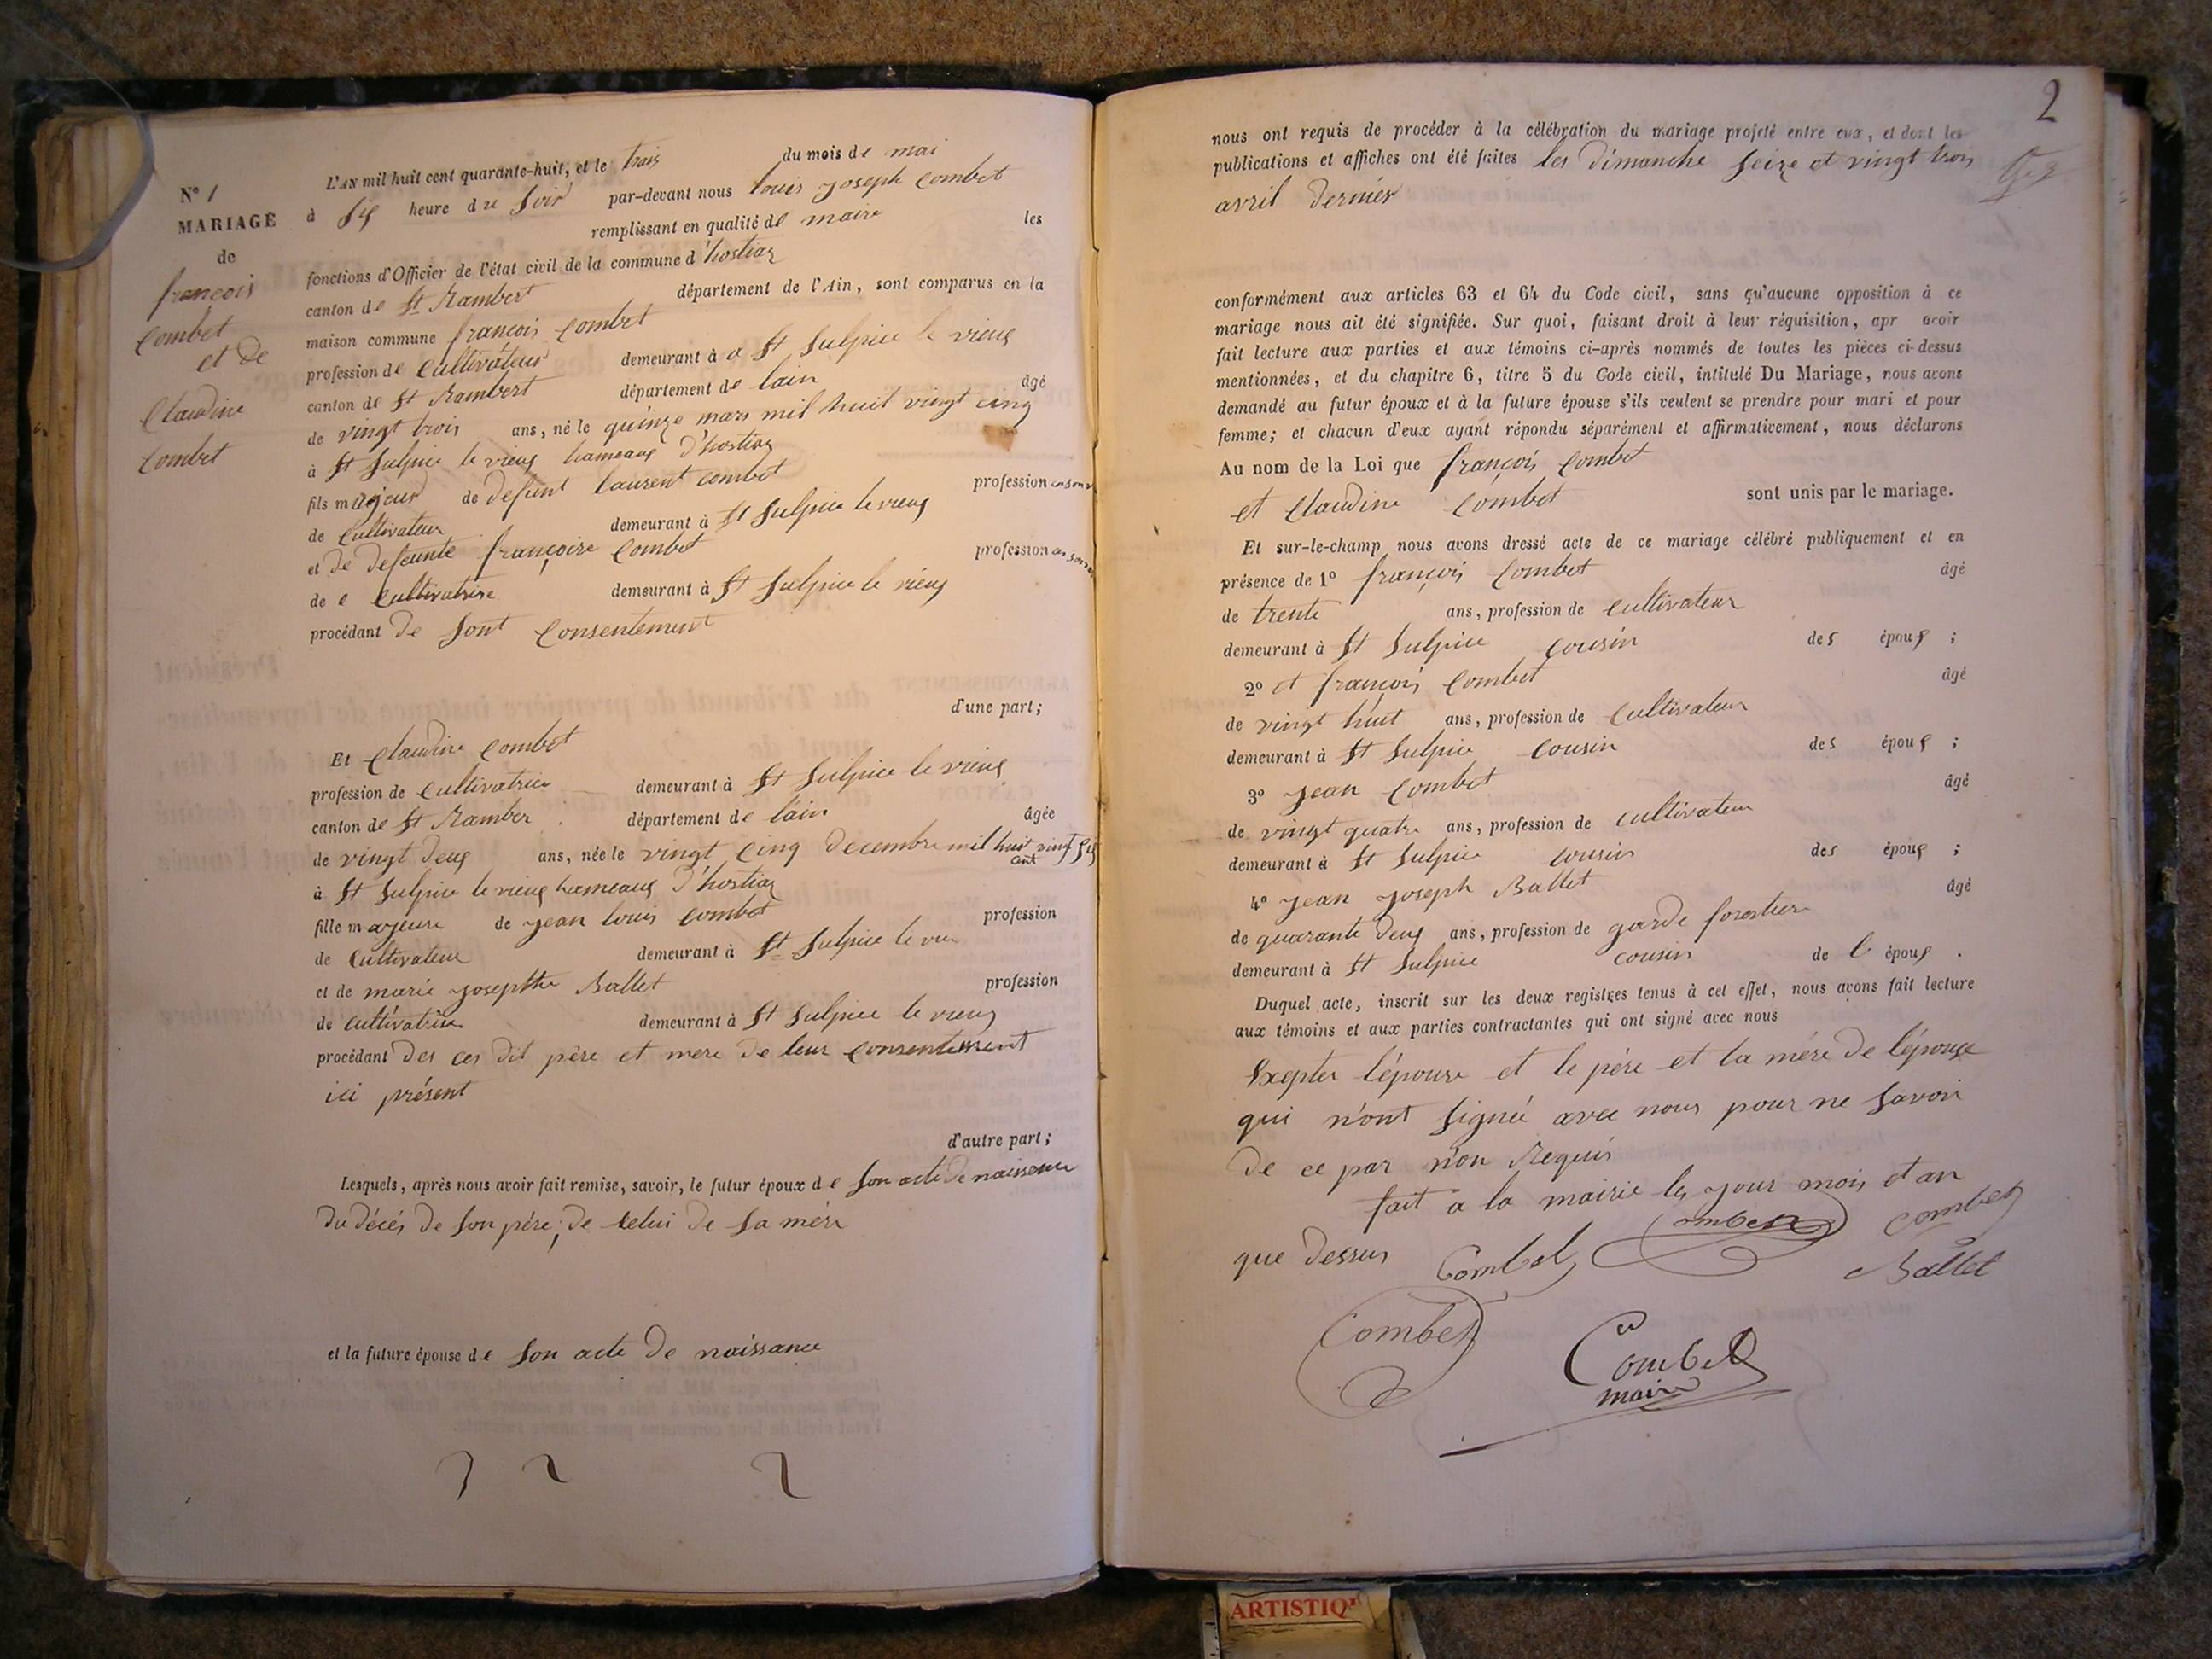 N° 1
MARIAGE
de
francois
Combet
et de
Claudine
Combet
L'AN mil huit cent quarante-huit, et le trois du mois de mai
à six heure du soir par-devant nous louis joseph Combet
remplissant en qualité de maire les
fonctions d'Officier de l'état civil de la commune d'hostiaz
canton de St Rambert département de l'Ain, sont comparus en la
maison commune francois Combet
profession de Cultivateur demeurant à a St Sulpice le vieux
canton de St Rambert département de lain âgé
de vingt trois ans, né le quinze mars mil huit vingt cinq
à St Sulpice le vieux hameaux d'hostiaz
fils majeur de defunt laurent Combet profession
de Cultivateur demeurant à St Sulpice le vieux
et de defunte françoise Combet profession
de Cultivatrice demeurant à St Sulpice le vieux
procédant de sont Consentement
d'une part;
Et Claudine Combet
profession de Cultivatrice demeurant à St Sulpice le vieux
canton de St Ramber département de lain âgée
de vingt deux ans, née le vingt cinq decembre mil huit cent vingt six
à St Sulpice le vieux hameaux d'hostiaz
fille majeure de jean louis Combet profession
de Cultivateur demeurant à St Sulpice le
et de marie josephte Ballet profession
de cultivatrice demeurant à St Sulpice le vieux
procédant des ces dit père et mere de leur consentement
ici présent
d'autre part;
Lesquels, après nous avoir fait remise, savoir, le futur époux de son acte de naissance
du décés de son pére, de celui de sa mére
et la future épouse de son acte de naissance
2
nous ont requis de procéder à la célébration du mariage projeté entre eux, et dont les
publications et affiches ont été faites les dimanche seize et vingt trois
avril dernier
conformément aux articles 63 et 64 du Code civil, sans qu'aucune opposition à ce
mariage nous ait été signifiée. Sur quoi, faisant droit à leur réquisition, apr avoir
fait lecture aux parties et aux témoins ci-après nommés de toutes les pièces ci-dessus
mentionnées, et du chapitre 6, titre 5 du Code civil, intitulé Du Mariage, nous avons
demandé au futur époux et à la future épouse s'ils veulent se prendre pour mari et pour
femme; et chacun d'eux ayant répondu séparément et affirmativement, nous déclarons
Au nom de la Loi que françois Combet
et Claudine Combet sont unis par le mariage.
Et sur-le-champ nous avons dressé acte de ce mariage célébré publiquement et en
présence de 1° françois Combet âgé
de trente ans, profession de cultivateur
demeurant à St Sulpice cousin des époux ;
2° et françois Combet âgé
de vingt huit ans, profession de Cultivateur
demeurant à St Sulpice cousin des époux ;
3° jean Combet âgé
de vingt quatre ans, profession de cultivateur
demeurant à St Sulpice cousin des époux ;
4° jean joseph Ballet âgé
de quarante deux ans, profession de garde forestier
demeurant à St Sulpice cousin de l époux .
Duquel acte, inscrit sur les deux registres tenus à cet effet, nous avons fait lecture
aux témoins et aux parties contractantes qui ont signé avec nous
Exepter l'épouse et le pére et la mére de l'épouse
qui n'ont signée avec nous pour ne savoir
de ce par n'on Requis
fait a la mairie les jour mois et an
que dessus Combet Combet Combet
Ballet
Combet
Combet
maire
ARTISTIQ